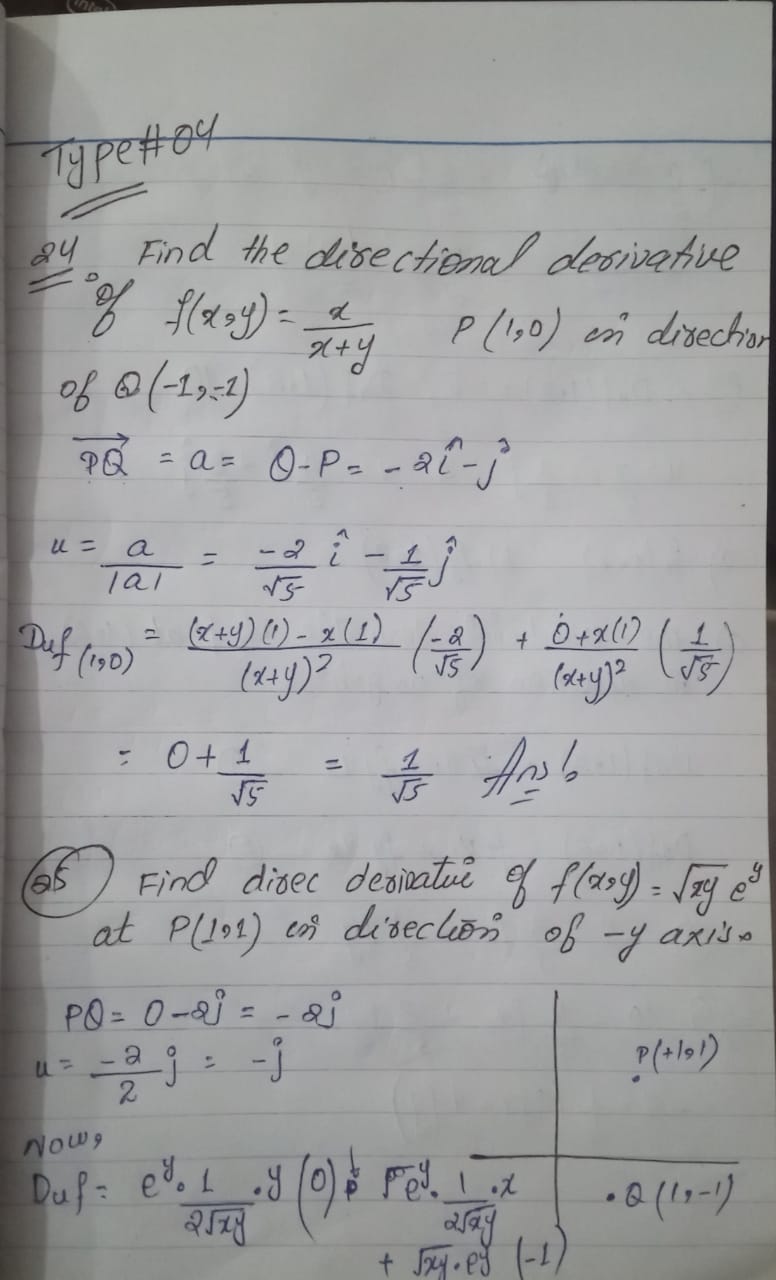 Type#04
24 Find the directional derivative
of f(x,y) = x/(x+y) P(1,0) in direction
of Q(-1,-1)
PQ = a = Q-P = -2î-ĵ
u = a/|a| = -2/√5 î - 1/√5 ĵ
Duf(1,0) = ((x+y)(1) - x(1))/(x+y)² (-2/√5) + (0+x(1))/(x+y)² (1/√5)
= 0 + 1/√5 = 1/√5 Ans
25 Find direc derivative of f(x,y) = √xy e^y
at P(1,1) in direction of -y axis.
PQ = 0-2j = -2j
u = -2/2 j = -j
P(+1,1)
Now,
Duf = e^y . 1/(2√xy) .y (0) + e^y . 1/(2√xy) .x
.Q(1,-1)
+ √xy . e^y (-1)